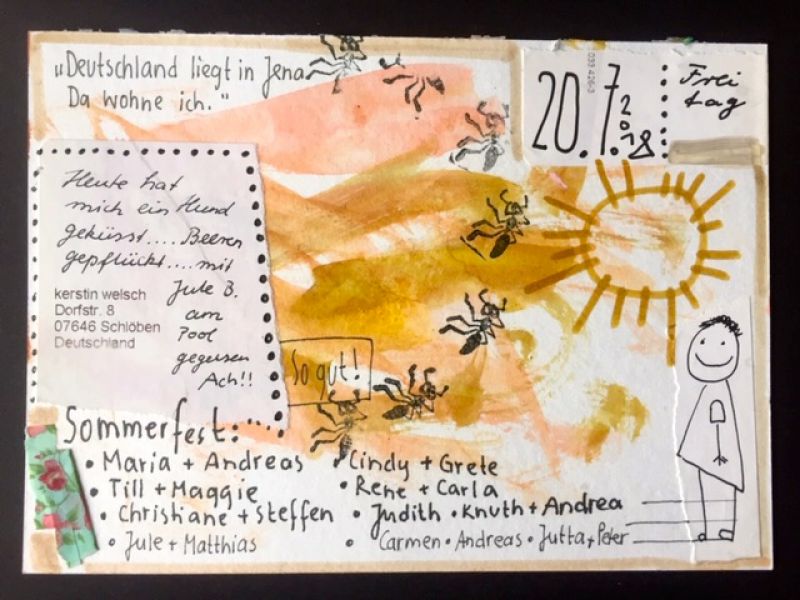 „Deutschland liegt in Jena
Da wohne ich."
20.7.2018
Frei
tag
033 426-3
Heute hat
mich ein Hund
geküsst.... Beeren
gepflückt.... mit
Jule B.
am
Pool
gegessen
Ach!!
kerstin welsch
Dorfstr. 8
07646 Schlöben
Deutschland
So gut!
Sommerfest:
• Maria + Andreas
• Cindy + Grete
• Till + Maggie
• Rene + Carla
• Christiane + Steffen
• Judith • Knuth + Andrea
• Jule + Matthias
• Carmen • Andreas • Jutta + Peter